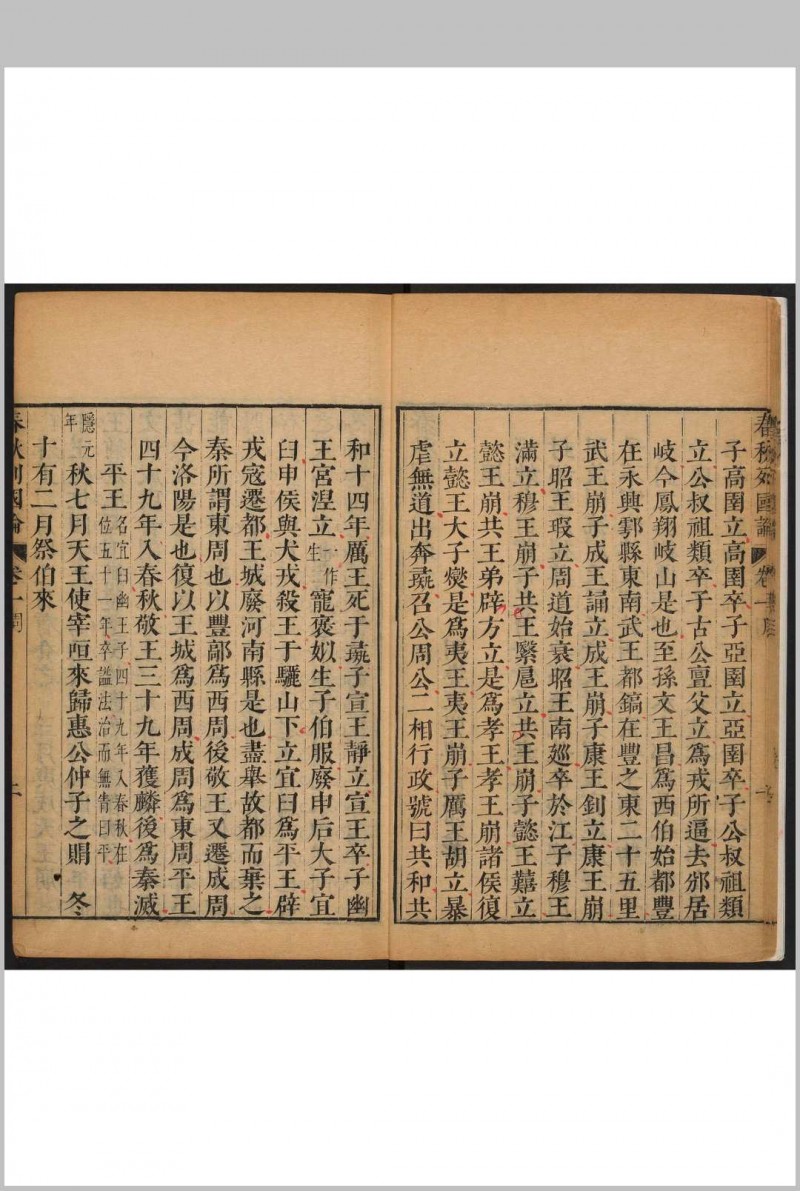 子高圉立高圉卒子亞圉立亞圉卒子公叔祖類
立公叔祖類卒子古公亶父立爲戎所逼去邠居
岐今鳳翔岐山是也至孫文王昌爲西伯始都豐
在永興鄠縣東南武王都鎬在豐之東二十五里
武王崩子成王誦立成王崩子康王釗立康王崩
子昭王瑕立周道始衰昭王南廵卒於江子穆王
滿立穆王崩子共王繄扈立共王崩子懿王囏立
懿王崩共王弟辟方立是爲孝王孝王崩諸侯復
立懿王大子燮是爲夷王夷王崩子厲王胡立暴
虐無道出奔彘召公周公二相行政號曰共和共
和十四年厲王死于彘子宣王靜立宣王卒子幽
王宮湼立一作生寵褒姒生子伯服廢申后大子宜
臼申侯與犬戎殺王于驪山下立宜臼爲平王辟
戎寇遷都王城廢河南縣是也盡舉故都而棄之
秦所謂東周也以豐鄗爲西周後敬王又遷成周
今洛陽是也復以王城爲西周成周爲東周平王
四十九年入春秋敬王三十九年獲麟後爲秦滅
平王名宜臼幽王子四十九年入春秋在位五十一年卒謚法治而無眚曰平
隱元年秋七月天王使宰咺來歸惠公仲子之賵 冬
十有二月祭伯來
卷一周
二